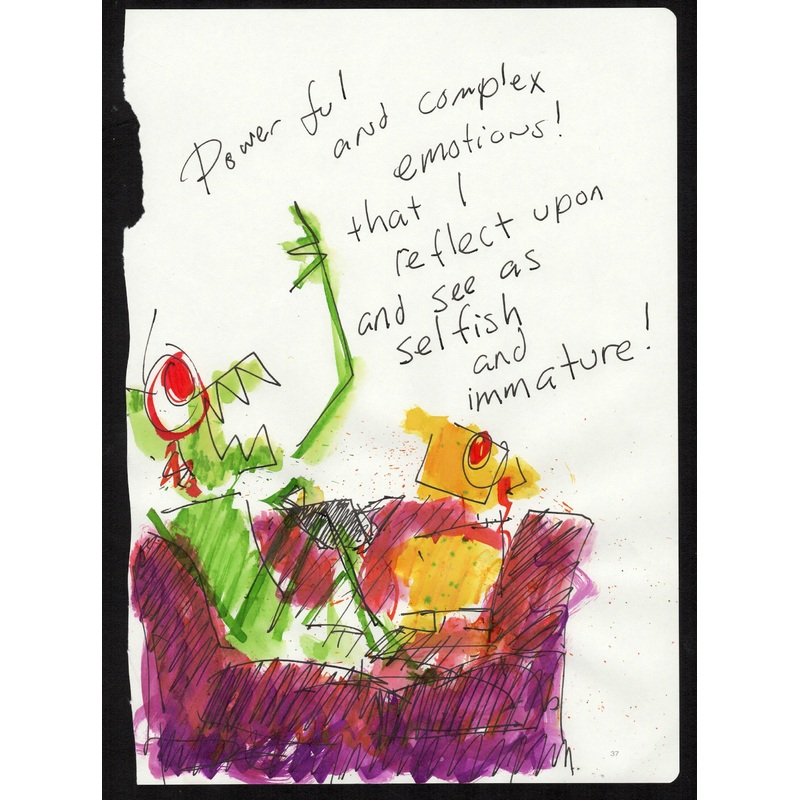 Powerful
and complex
emotions!
that I
reflect upon
and see as
selfish
and
immature!
37